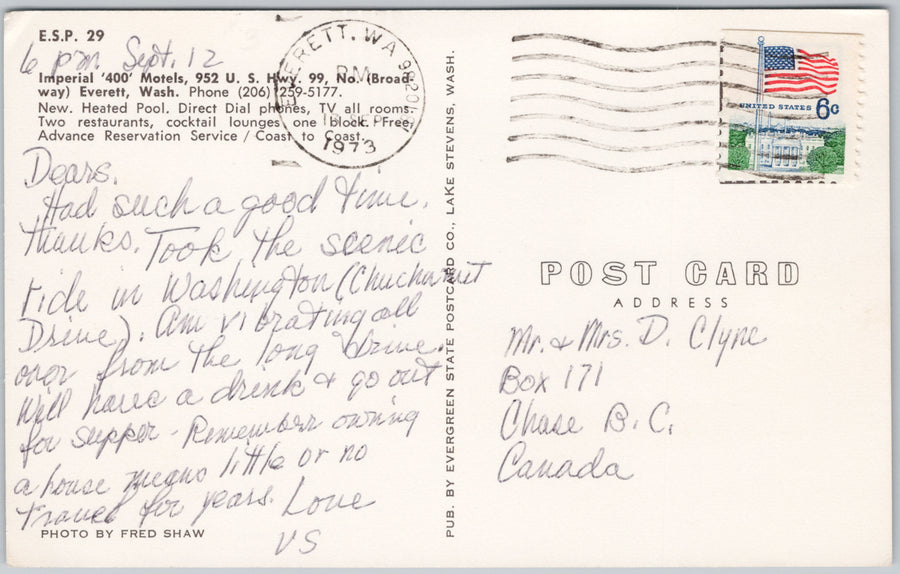 E.S.P. 29
6 pm Sept. 12
Imperial '400' Motels, 952 U. S. Hwy. 99, No. (Broad-
way) Everett, Wash. Phone (206) 259-5177.
New. Heated Pool. Direct Dial phones, TV all rooms.
Two restaurants, cocktail lounges one block. Free,
Advance Reservation Service / Coast to Coast.
Dears.
Had such a good time.
Thanks. Took the scenic
ride in Washington (Chuchanut
Drive). Am vibrating all
over from the long drive.
Will have a drink & go out
for supper - Remember owning
a house means little or no
travel for years. Love
VS
PHOTO BY FRED SHAW
PUB. BY EVERGREEN STATE POSTCARD CO., LAKE STEVENS, WASH.
EVERETT, WA 982
PM
1973
UNITED STATES 6c
POST CARD
ADDRESS
Mr. & Mrs. D. Clyne
Box 171
Chase B.C.
Canada